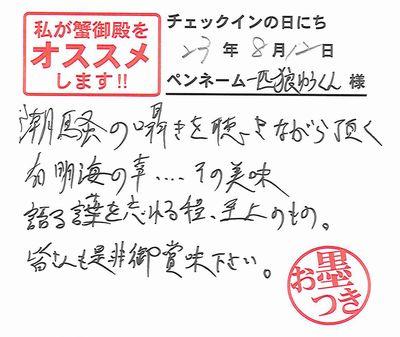 私が蟹御殿を
オススメ
します!!
チェックインの日にち
23年8月12日
ペンネーム 一匹狼ゆうくん 様
潮騒の囁きを聴きながら頂く
有明海の幸....その美味
語る言葉を忘れる程、至上のもの。
皆さんも是非御賞味下さい。
お墨つき